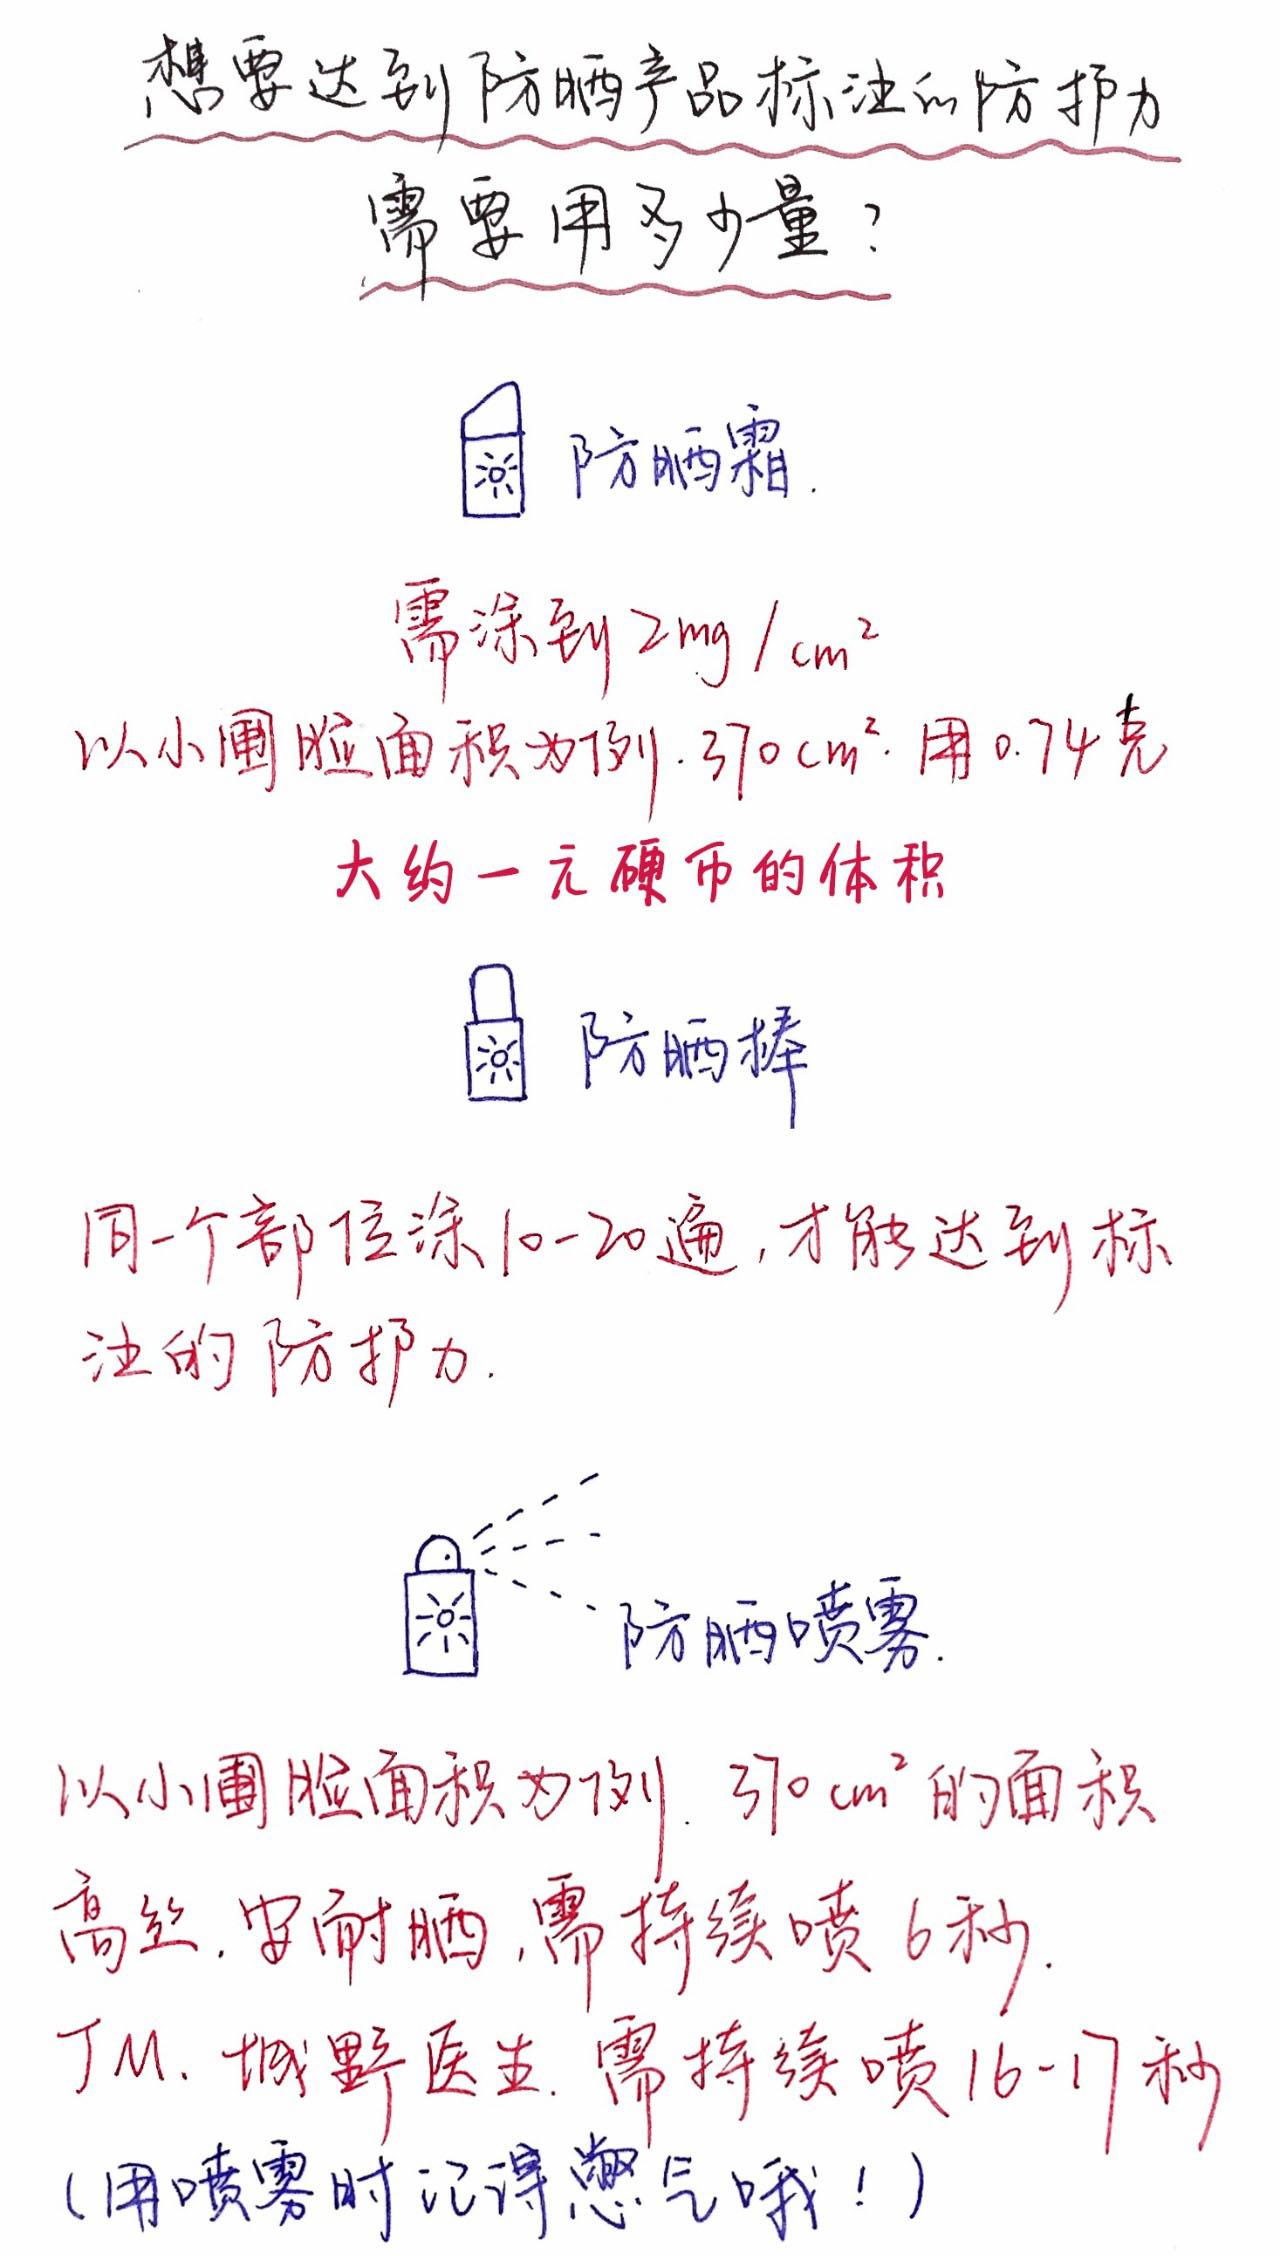 想要达到防晒产品标注的防护力
需要用多少量?
防晒霜.
需涂到2mg/cm²
以小圃脸面积为例.370cm².用0.74克
大约一元硬币的体积
防晒棒
同一个部位涂10-20遍,才能达到标
注的防护力.
防晒喷雾.
以小圃脸面积为例.370cm²的面积
高丝.安耐晒,需持续喷6秒.
JM.城野医生.需持续喷16-17秒
(用喷雾时记得憋气哦!)